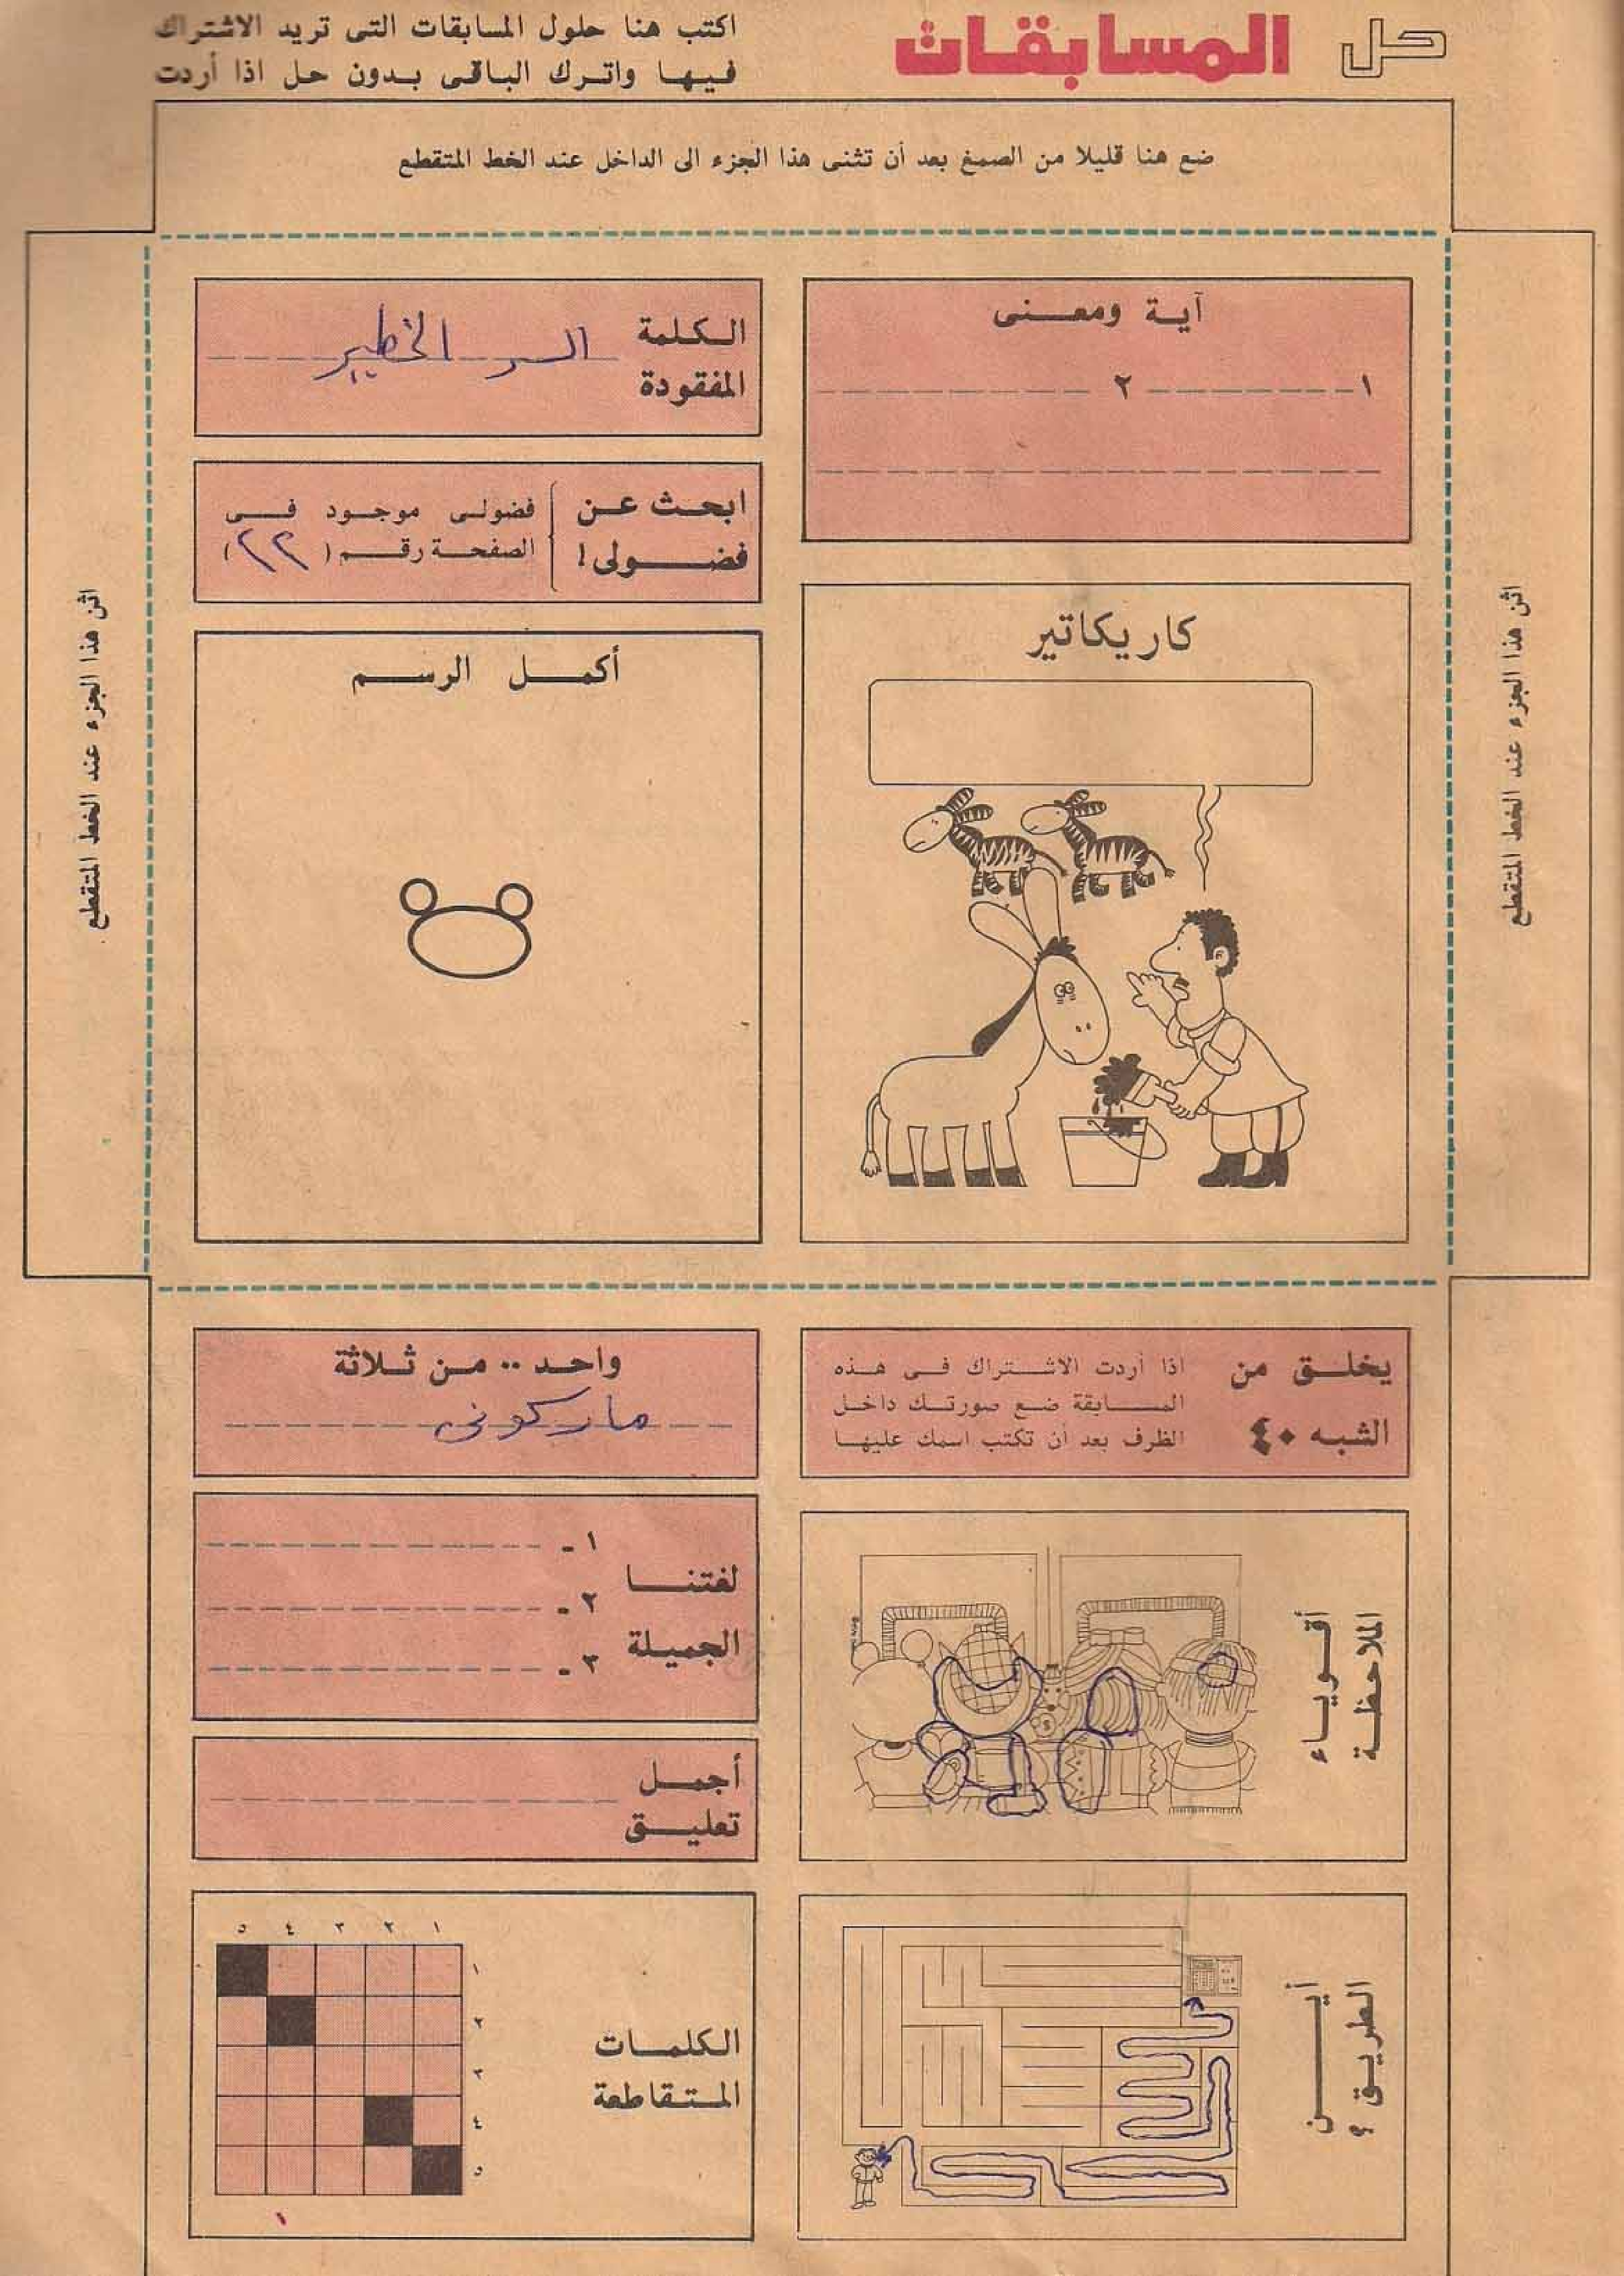 حل المسابقات
اكتب هنا حلول المسابقات التى تريد الاشتراك
فيها واترك الباقى بدون حل اذا أردت
ضع هنا قليلا من الصمغ بعد أن تثنى هذا الجزء الى الداخل عند الخط المتقطع
اثن هذا الجزء عند الخط المتقطع
آية ومعنى
١ ٢
الكلمة
المفقودة
السر الخطير
ابحث عن
فضولى !
فضولى موجود فى
الصفحة رقم ( ٢٢ )
كاريكاتير
أكمل الرسم
اثن هذا الجزء عند الخط المتقطع
يخلق من
الشبه ٤٠
اذا أردت الاشتراك فى هذه
المسابقة ضع صورتك داخل
الظرف بعد أن تكتب اسمك عليها
واحد .. من ثلاثة
ماركونى
أقوياء
الملاحظة
لغتنا
الجميلة
١ -
٢ -
٣ -
أجمل
تعليق
أين
الطريق ؟
الكلمات
المتقاطعة
١ ٢ ٣ ٤ ٥
١
٢
٣
٤
٥